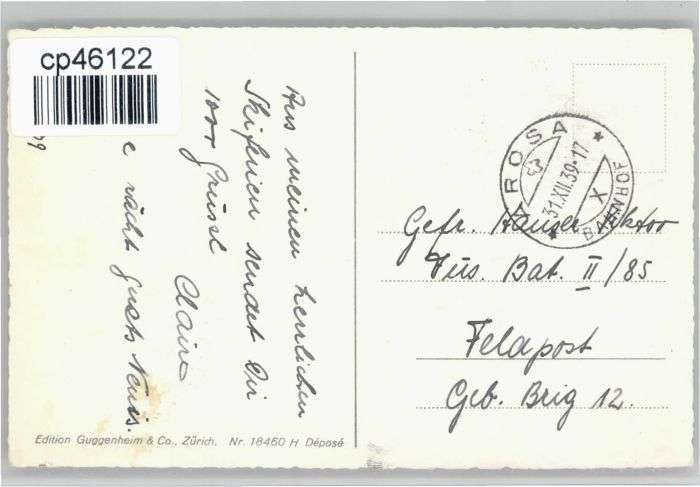 cp46122
Aus meinen herrlichen
Skiferien sendet Dir
1000 Grüsse
Claire
e rächt guets Neus.
AROSA
31.XII.39-17
X
BAHNHOF
Gefr. Hauser Viktor
Füs. Bat. II/85
Feldpost
Geb. Brig 12.
Edition Guggenheim & Co., Zürich. Nr. 18460 H Déposé